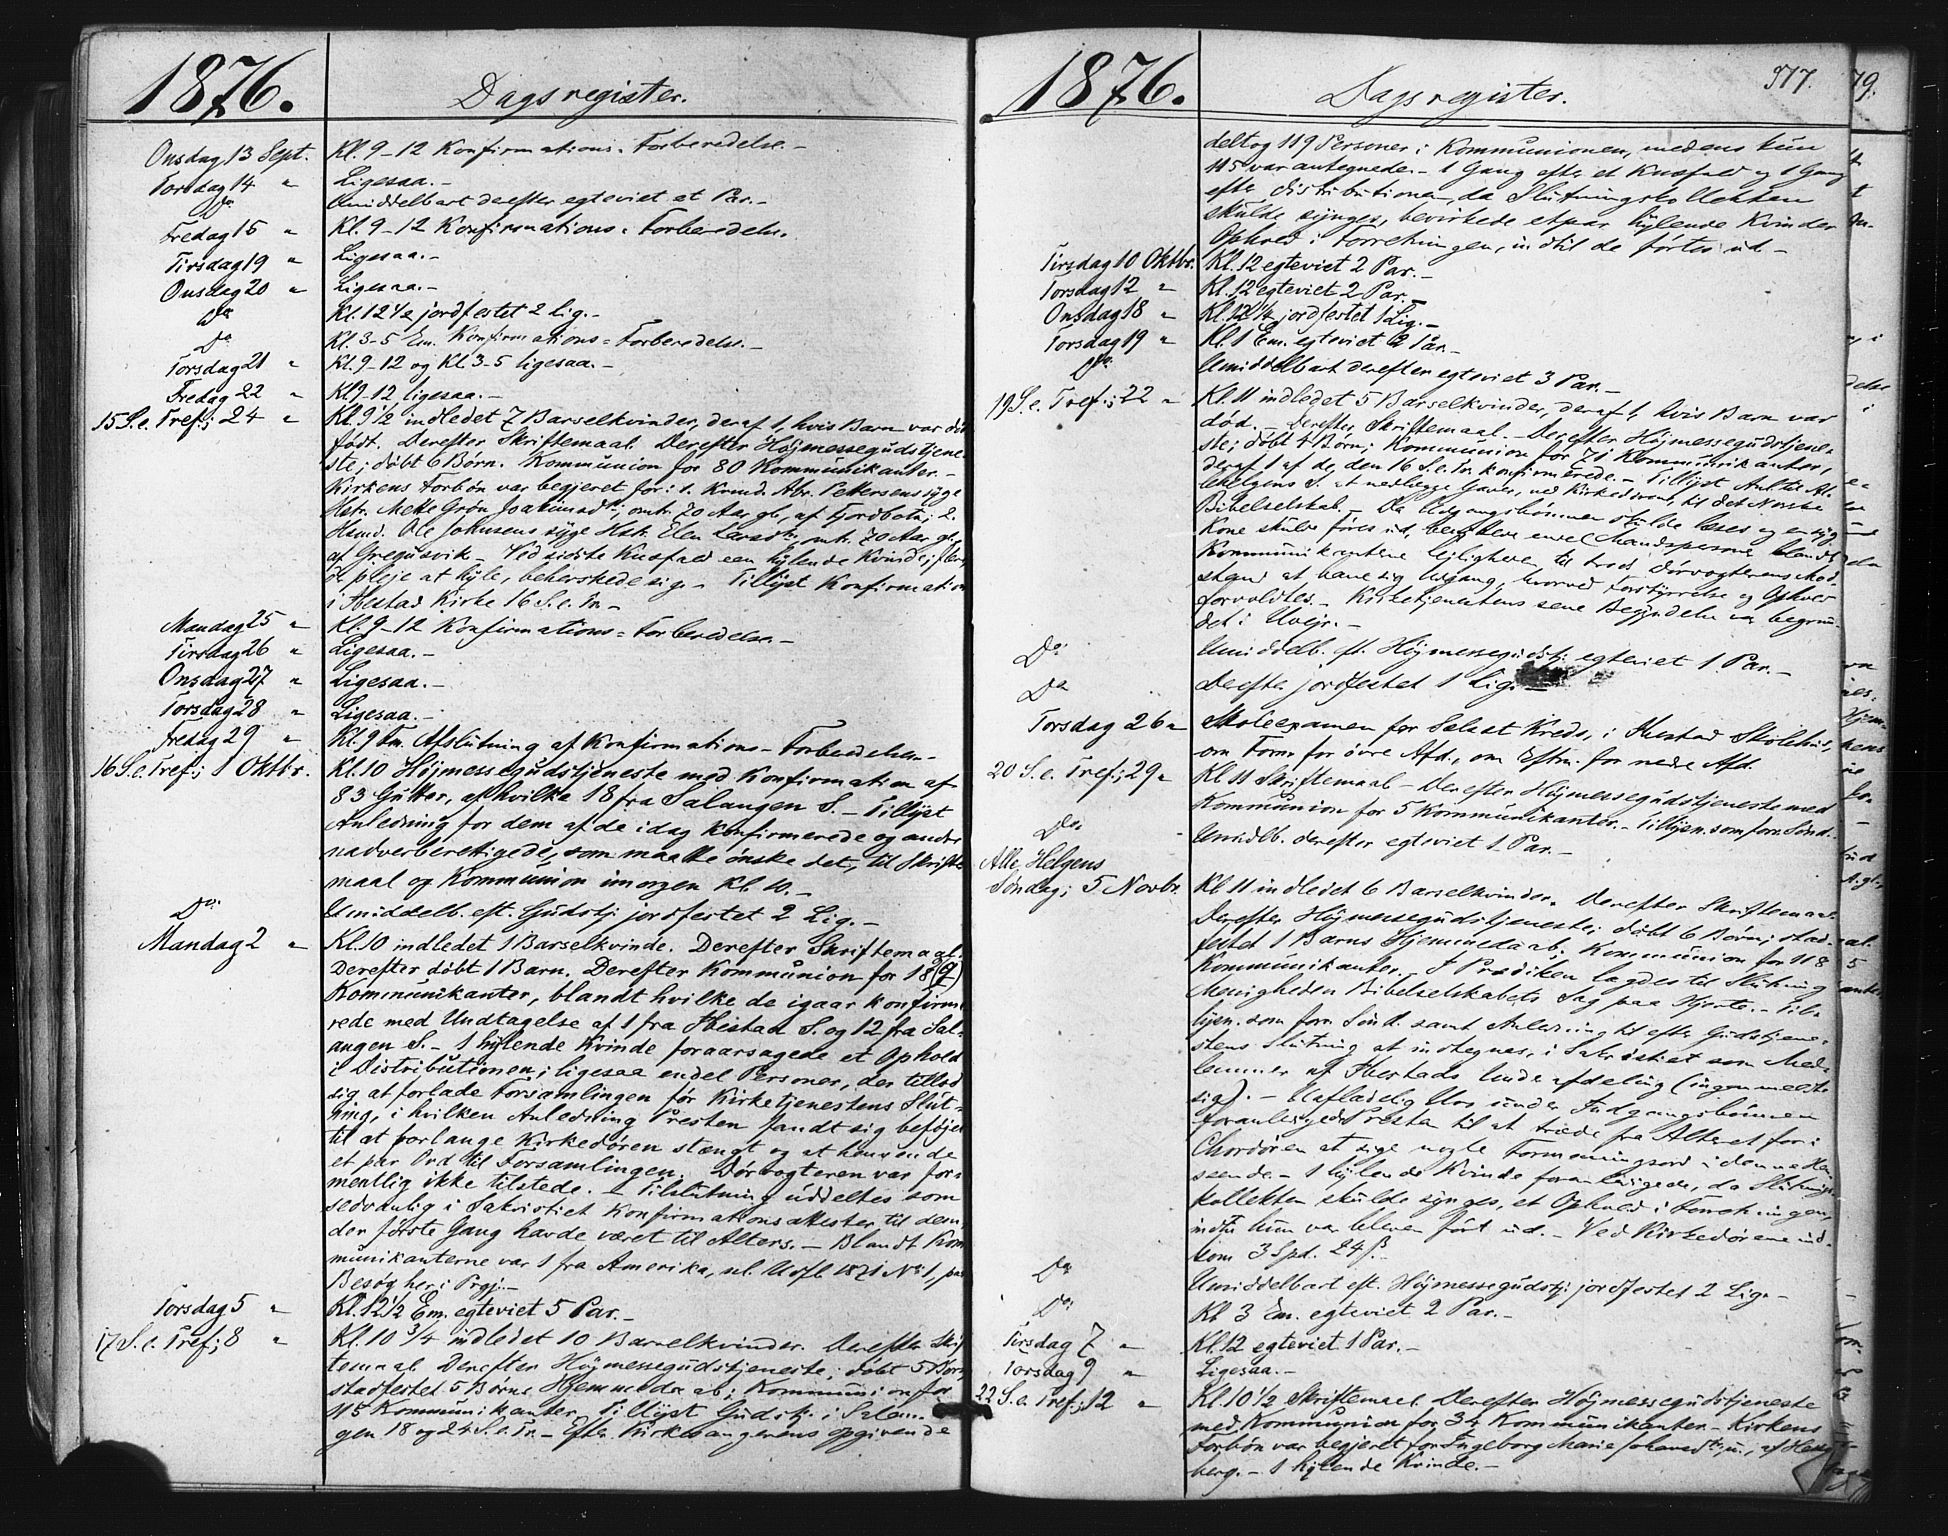 1876.
Dagsregister.
Onsdag 13 Sept. Kl. 9-12 Konfirmations-Forberedelse.-
Torsdag 14 " Ligesaa.-
Do Umiddelbart derefter egteviet et Par.-
Fredag 15 " Kl. 9-12 Konfirmations-Forberedelse.
Tirsdag 19 " Ligesaa.-
Onsdag 20 " Ligesaa.-
Do Kl. 12 1/2 jordfestet 2 Lig.-
Do Kl. 3-5 Em. Konfirmations-Forberedelse.-
Torsdag 21 " Kl. 9-12 og Kl. 3-5 ligesaa.-
Fredag 22 " Kl 9-12 ligesaa.-
15 S. e. Tref.; 24 " Kl. 9 1/2 indledet 7 Barselkvinder, deraf 1, hvis Barn var død
født. Derefter Skriftemaal. Derefter Höjmessegudstjene
ste; døbt 6 Børn. Kommunion for 80 Kommunikanter.-
Kirkens Forbøn var begjeret for: 1. Kvind. Abr. Pettersens syge
Hstr. Mette Grøn Joakimsdtr; omtr. 70 Aar gl., af Fjordbotn; 2.
Hsmd. Ole Johnsens syge Hstr. Elen omtr. 70 Aar gl.,
af Gregusvik.- Ved sidste Knæfald een hylende Kvinde;
pleje at hyle, beherskede sig.- Tillyst Konfirmation
i Ibestad Kirke 16 S. e. Tr.-
Mandag 25 " Kl. 9-12 Konfirmations-Forberedelse.-
Tirsdag 26 " Ligesaa.-
Onsdag 27 " Ligesaa.-
Torsdag 28 " Ligesaa.-
Fredag 29 " Kl. 9 Fm. Afslutning af Konfirmations-Forberedelsen.-
16 S. e. Tref.; 1 Oktbr. Kl. 10 Höjmessegudstjeneste med Konfirmation af
83 Gutter, af hvilke 18 fra Salangen S.- Tillyst
Anledning for dem af de idag konfirmerede og andre
nadverberettigede, som maatte ønske det, til Skrifte
maal og Kommunion imorgen Kl. 10.-
Do. Umiddelb. eft. Gudstj. jordfestet 2 Lig.-
Mandag 2 " Kl. 10 indledet 1 Barselkvinde. Derefter Skriftemaal.
Derefter døbt 1 Barn. Derefter Kommunion for 18(9)
Kommunikanter, blandt hvilke de igaar konfirme
rede med Undtagelse af 1 fra Ibestad S. og 12 fra Sal-
angen S.- 1 hylende Kvinde foraarsagede et Ophold
i Distributionen; ligesaa endel Personer, der tillod
sig at forlade Forsamlingen før Kirketjenestens Slut-
ning, i hvilken Anledning Presten fandt sig beføjet
til at forlange Kirkedøren stængt og at henvende
et par Ord til Forsamlingen. Dörvogteren var for-
mentlig ikke tilstede.- Tilslutning uddeltes som
sedvanlig i Sakristiet Konfirmationsattester til dem,
der første Gang havde været til Alters.- Blandt Kom
munikanterne var 1 fra Amerika, se Udfl. 1871 No 1, paa
Besøg her i Prgj.-
Torsdag 5 " Kl. 12 1/2 Em. egteviet 5 Par.-
17 S. e. Tref.; 8 " Kl. 10 3/4 indledet 10 Barselkvinder. Derefter Skrif
temaal. Derefter Höjmessegudstjeneste; døbt 5 Børn,
stadfestet 5 Børns Hjemmedaab; Kommunion for
115 Kommunikanter. Tillyst Gudstj. i Salan-
gen 18 og 24 S. e. Tr.- Efter Kirkesangerens opgivende
1876.
Dagsregister.
377.
79.
deltog 119 Personer i Kommunionen, medens kun
115 var antegnede.- 1 Gang efter et Knæfald og 1 Gang
efter Distributionen, da Slutningskollekten
skulde synges, bevirkede et par hylende Kvinder
Ophold i Forretningen, indtil de førtes ud.-
Tirsdag 10 Oktbr. Kl. 12 egteviet 2 Par.-
Torsdag 12 " Kl. 12 egteviet 2 Par.-
Onsdag 18 " Kl. 12 1/4 jordfestet 1 Lig.-
Torsdag 19 " Kl. 1 Em. egteviet 2 Par.-
Do. Umiddelbart derefter egteviet 3 Par.-
19 S. e. Tref.; 22 " Kl. 11 indledet 5 Barselkvinder, deraf 1, hvis Barn var
død.- Derefter Skriftemaal.- Derefter Höjmessegudstjene-
ste; døbt 4 Børn; Kommunion for 71 Kommunikanter,
deraf 1 af de, den 16 S. e. Tr. konfirmerede.- Tillyst Anl. til Al-
lehelgens S. at nedlægge Gaver, ved Kirkedørene, til det Norske
Bibelselskab.- Da Udgangsbønnen skulde læses og en syg
Kone skulde føres ud, benyttede endel Mandspersoner blandt
Kommunikanterne lejligheden til trods Dørvogterens Mod-
stand at bane sig Udgang, hvorved Forstyrrelse og Ophold
forvoldtes.- Kirketjenestens sene Begyndelse var begrun-
det i Uvejr.-
Do. Umiddelb. eft. Höjmessegudstj. egteviet 1 Par.-
Do Derefter jordfestet 1 Lig.
Torsdag 26 " Skoleexamen for Selset Kreds, i Ibestad Skolehus,
om Form. for övre Afd., om Eftm. for nedre Afd.
20 S. e. Tref.; 29 " Kl. 11 Skriftemaal.- Derefter Höjmessegudstjeneste med
Kommunion for 5 Kommunikanter.- Tillysn. som forr. Sönd.
Do. Umidlb. derefter egteviet 1 Par.-
Alle Helgens
Søndag; 5 Novbr. Kl. 11 indledet 6 Barselkvinder. Derefter Skriftemaal.
Derefter Höjmessegudstjeneste; døbt 6 Børn; stad-
festet 1 Barns Hjemmedaab; Kommunion for 118
Kommunikanter.- I Prædiken lagdes til Slutning
Menigheden Bibelselskabets Sag paa Hjerte.- Til-
lysn. som forr. Sönd. samt Anledning til efter Gudstjene-
stens Slutning at indtegnes, i Sakristiet som Med-
lemmer af Ibestads Underafdeling (ingen meldte
sig).- Uafladelig Uro under Indgangsbønnen
foranledigede Presten til at træde fra Alteret for i
Chordören at sige nogle Formaningsord i den
seende.- 1 hylende Kvinde foranledigede, da Slutnings-
kollekten skulde synges, et Ophold i Forretningen,
indtil hun var bleven ført ud.- Ved Kirkedørene ind-
kom 3 Spd. 24 ß.
Do. Umiddelbart eft. Höjmessegudstj. jordfestet 2 Lig.-
Do. Kl. 3 Em. egteviet 2 Par.-
Tirsdag 7 " Kl. 12 egteviet 1 Par.-
Torsdag 9 " Ligesaa.-
22 S. e. Tref.; 12 " Kl. 10 1/2 Skriftemaal. Derefter Höjmessegudstjeneste
med Kommunion for 34 Kommunikanter.- Kirkens
Forbøn var begjeret for Ingeborg Marie Johannesdtr., af Hesse
berg.- 1 hylende Kvinde.-